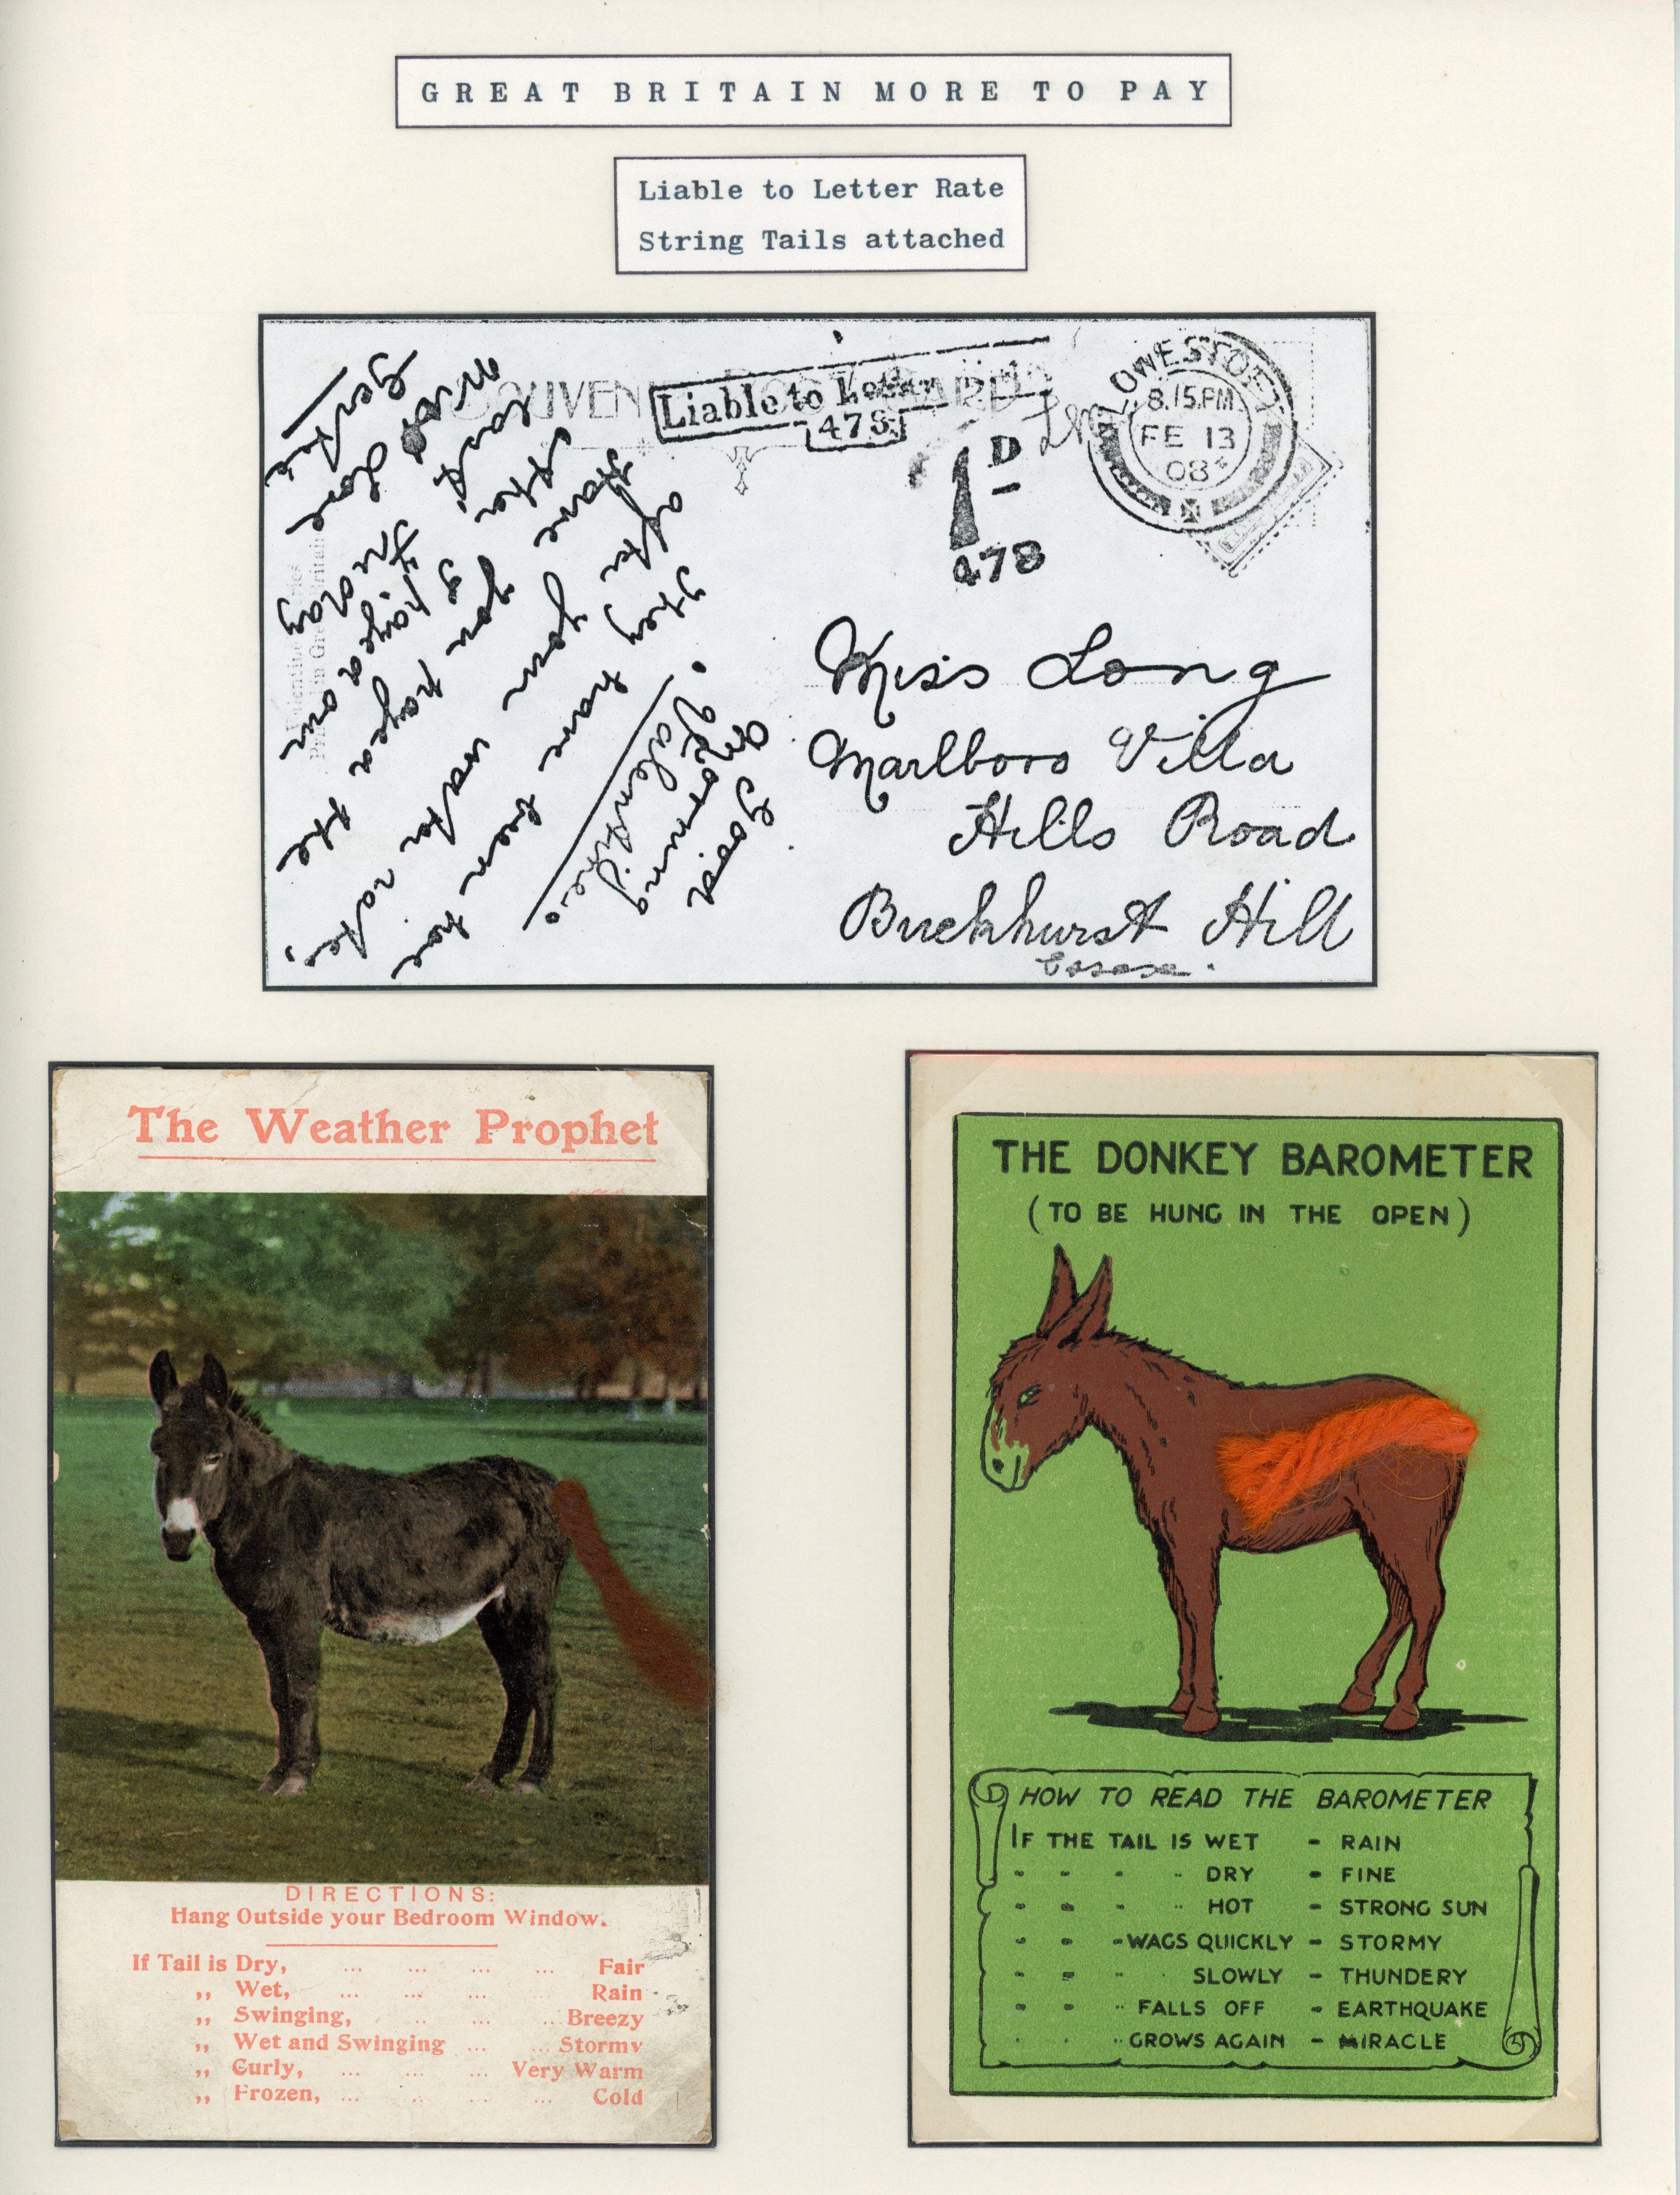 GREAT BRITAIN MORE TO PAY
Liable to Letter Rate
String Tails attached
Liable to Letter
473
1D
478
LOWESTOFT
8.15.PM
FE 13
08
Good
Morning
Valentine.
They have been here
after your water rates,
Have you payed the
&
payed our
Love
Gertie
Miss Long
Marlboro Villa
Hills Road
Buckhurst Hill
Essex.
The Weather Prophet
DIRECTIONS:
Hang Outside your Bedroom Window.
If Tail is Dry, ... ... ... ... Fair
,, Wet, ... ... ... Rain
,, Swinging, .. ... .. Breezy
,, Wet and Swinging ... ... Stormy
,, Curly, ... ... ... Very Warm
,, Frozen, ... .. ... ... Cold
THE DONKEY BAROMETER
(TO BE HUNG IN THE OPEN)
HOW TO READ THE BAROMETER
IF THE TAIL IS WET - RAIN
" " " " DRY - FINE
" " " " HOT - STRONG SUN
" " " WAGS QUICKLY - STORMY
" " " " SLOWLY - THUNDERY
" " " FALLS OFF - EARTHQUAKE
" " " GROWS AGAIN - MIRACLE